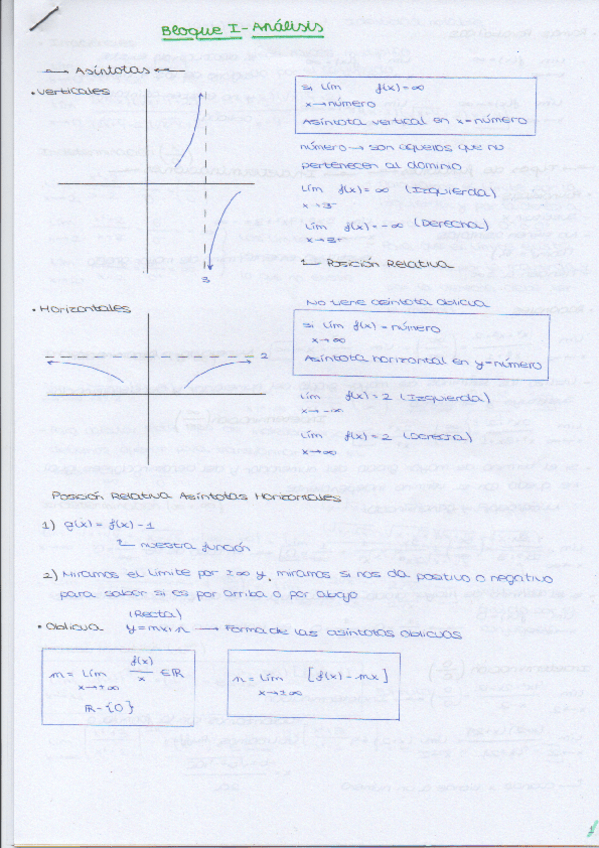 Bloque I - Análisis
Asíntotas
• Verticales
3
Si lím f(x) = ∞
x→número
Asíntota vertical en x = número
número → son aquellos que no
pertenecen al dominio
lím f(x) = ∞ (Izquierda)
x→3⁻
lím f(x) = -∞ (Derecha)
x→3⁺
Posición Relativa
• Horizontales
2
No tiene asíntota oblicua
Si lím f(x) = número
x→∞
Asíntota horizontal en y = número
lím f(x) = 2 (Izquierda)
x→-∞
lím f(x) = 2 (Derecha)
x→∞
Posición Relativa Asíntotas Horizontales
1) g(x) = f(x) - 1
nuestra función
2) Miramos el límite por ±∞ y, miramos si nos da positivo o negativo
para saber si es por arriba o por abajo
(Recta)
• Oblicua y = mx+n → Forma de las asíntotas oblicuas
m = lím f(x)/x ∈ ℝ
x→±∞
ℝ - {0}
n = lím [f(x) - mx]
x→±∞
1